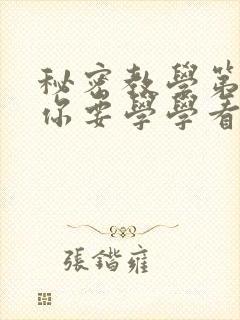 秘密教學第
你要學學看
張鍇雍